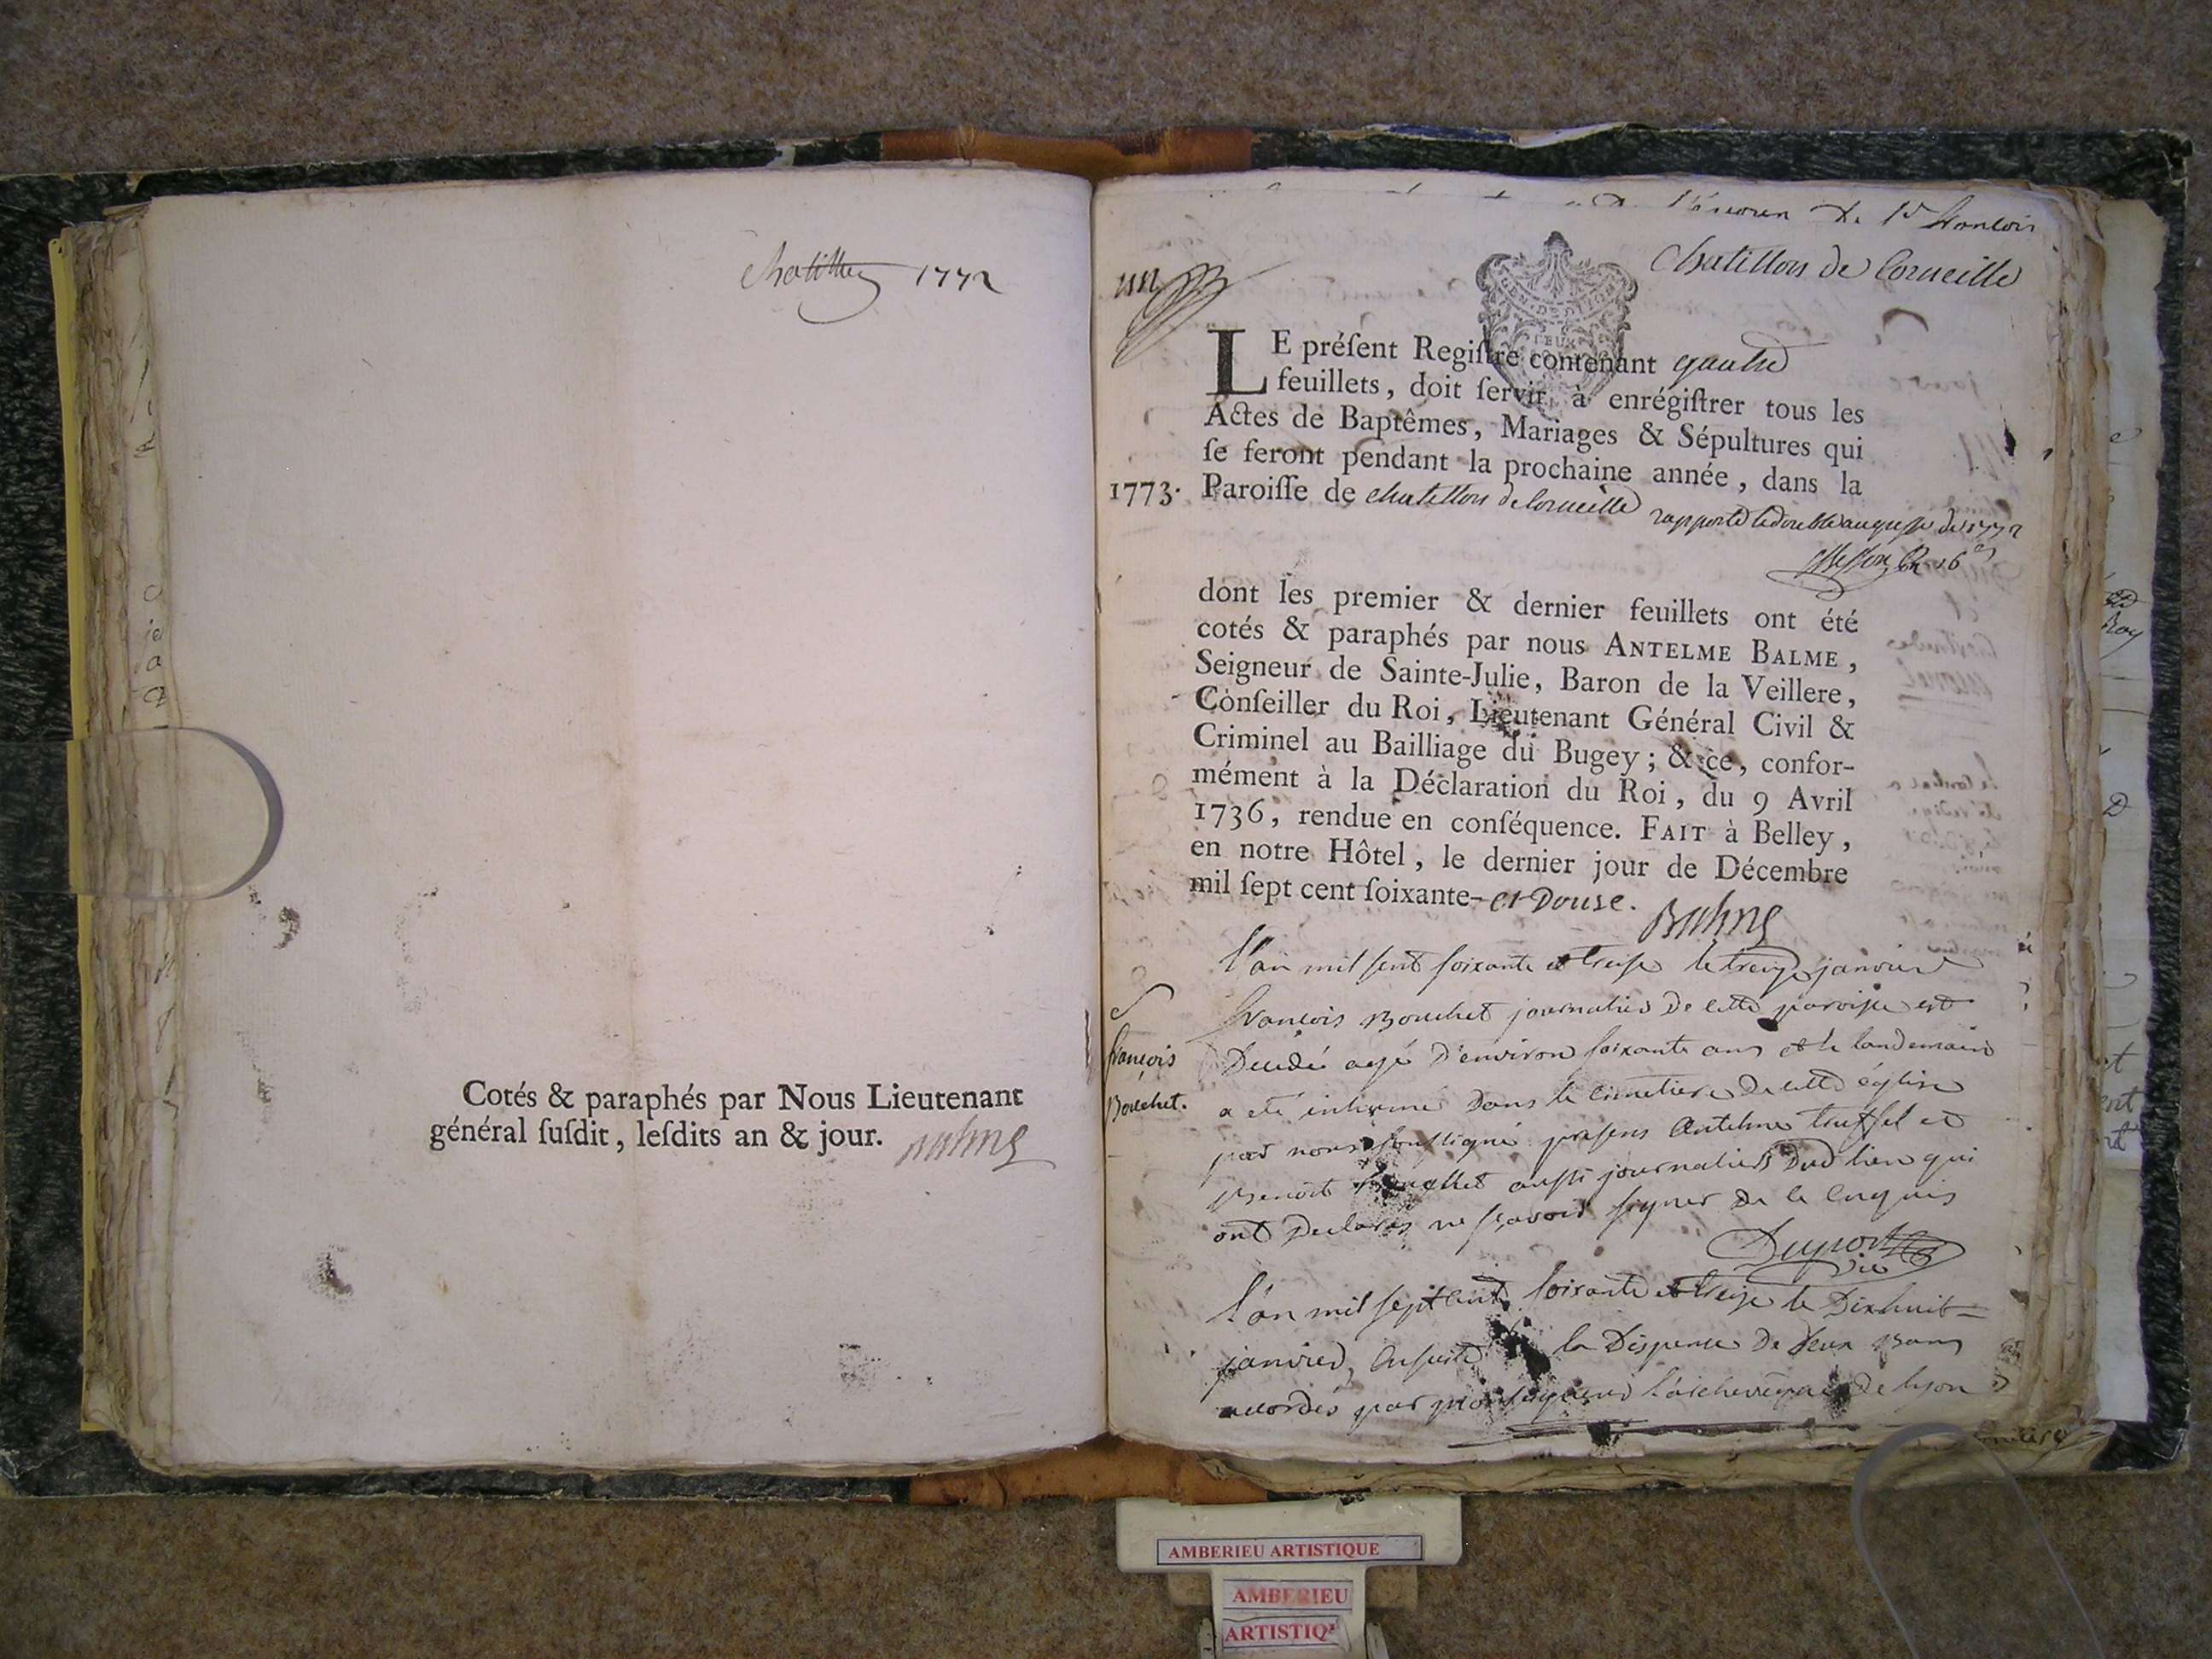 chatillon 1772
Cotés & paraphés par Nous Lieutenant
général ſuſdit, leſdits an & jour. Balme
de St francois
Chatillon de Corneille
GEN DE LYON
DEUX
LE préſent Regiſtre contenant quatre
feuillets, doit ſervir à enrégiſtrer tous les
Actes de Baptêmes, Mariages & Sépultures qui
ſe feront pendant la prochaine année, dans la
1773. Paroiſſe de chatillon de Corneille
rapporté le double au greffe de 1772
dont les premier & dernier feuillets ont été
cotés & paraphés par nous ANTELME BALME,
Seigneur de Sainte-Julie, Baron de la Veillere,
Conſeiller du Roi, Lieutenant Général Civil &
Criminel au Bailliage du Bugey; & ce, confor-
mément à la Déclaration du Roi, du 9 Avril
1736, rendue en conſéquence. FAIT à Belley,
en notre Hôtel, le dernier jour de Décembre
mil ſept cent ſoixante- et Douse.
Balme
S
francois
Bouchet.
l'an mil sent soixante et treise le treize janvier
francois Bouchet journalier de cette paroisse est
Decedé agé d'environ soixante ans et le landemain
a eté inhumé dans le cimetiere de cette église
par nous soussigné presens Antelme truffet et
Benoit Bouchet aussi journaliers dud lieu qui
ont Declarés ne sçavoir signer de ce enquis
Dupont
vic
l'an mil sept cent soixante et treize le Dixhuit
janvier, Ensuite la Dispense de deux Bans
accordés par monseigneur l'archevêque de lyon
AMBERIEU ARTISTIQUE
AMBERIEU
ARTISTIQ